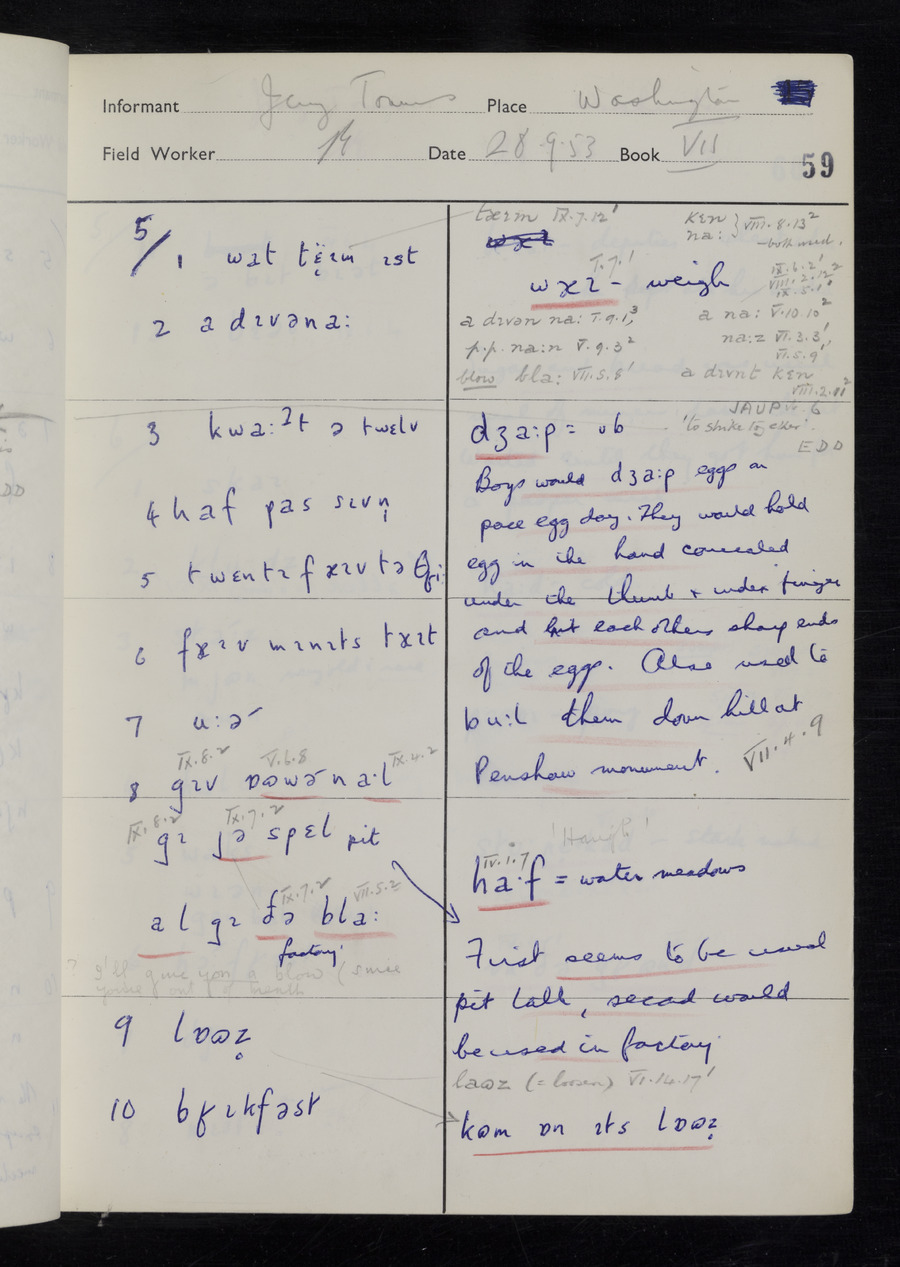 Informant Place Washington
Field Worker Date 28.9.53 Book VII
59
5/1 wat tɛ̈ːm ɪst
2 a dɪvəna:
3 kwa:ʔt ə twelv
4 haf pas sɪvn̩
5 twɛntɪ fæɪv tə θʁi:
6 fæɪv mɪnɪts tæɪt
7 u:ə
IX.8.2 V.6.8 IX.4.2
8 gɪv ɒωwə na·l
IX.8.2 IX.7.2
gɪ jə spɛl pit
IX.7.2 VII.5.2
al gɪ ðə bla:
factory.
? I'll give you a blow (since
you're out of breath
9 lɒωz̥
10 bʁɪkfəst
tærm IX.7.12'
wæɪ
kɛn
na: } VIII.8.13²
– both used.
I.7.1
wæɪ – weigh
IX.6.2'
VIII.2.12²
IX.5.1'
a dɪvən na: I.9.1,³
a na: V.10.10²
p.p. na:n V.9.3²
na:z VI.3.3',
VI.5.9'
blow bla: VII.5.8'
a dɪvnt kɛn
VIII.2.11²
JAUP v. 6
dʒa:p = ub
'to strike together'.
EDD
Boys would dʒa:p eggs on
pace egg day. They would hold
egg in the hand concealed
under the thumb & index finger
and hit each others sharp ends
of the eggs. Also used to
bu:l them down hill at
Penshaw monument. VII.4.9
'Haugh'
IV.1.7
ha:f = water meadows
First seems to be usual
pit talk, second would
be used in factory
laωz (= loosen) VI.14.17'
kωm ɒn ɪts lɒωz̥